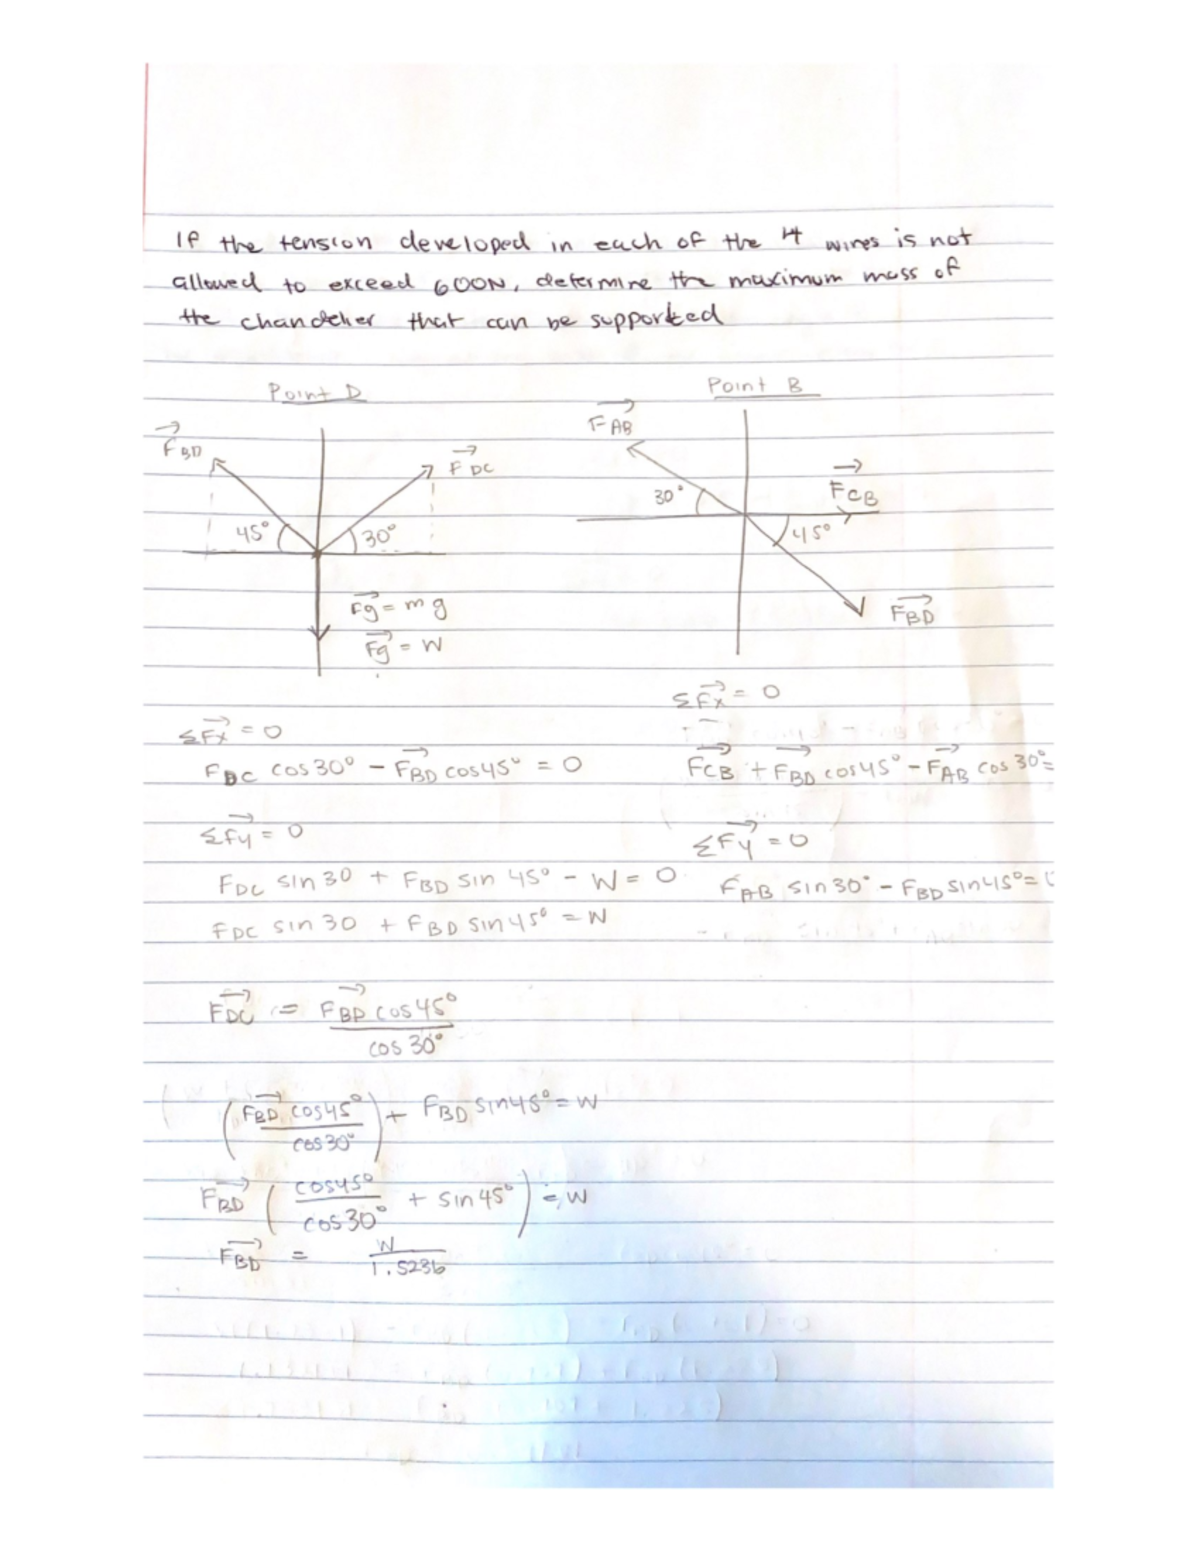 If the tension developed in each of the 4 wires is not
allowed to exceed 600N, determine the maximum mass of
the chandelier that can be supported
Point D
F⃗BD
F⃗DC
45°
30°
F⃗g = mg
F⃗g = W
Point B
F⃗AB
30°
F⃗CB
45°
F⃗BD
ΣF⃗x = 0
FDC cos30° - F⃗BD cos45° = 0
ΣF⃗y = 0
FDC sin 30 + FBD sin 45° - W = 0
FDC sin 30 + FBD sin 45° = W
ΣF⃗x = 0
F⃗CB + F⃗BD cos45° - F⃗AB cos 30° =
ΣF⃗y = 0
FAB sin 30° - FBD sin45° =
F⃗DC = F⃗BD cos45°
cos 30°
(F⃗BD cos45° ) + FBD sin45° = W
cos30°
F⃗BD ( cos45° + sin 45° ) = W
cos30°
F⃗BD = W
1.5236